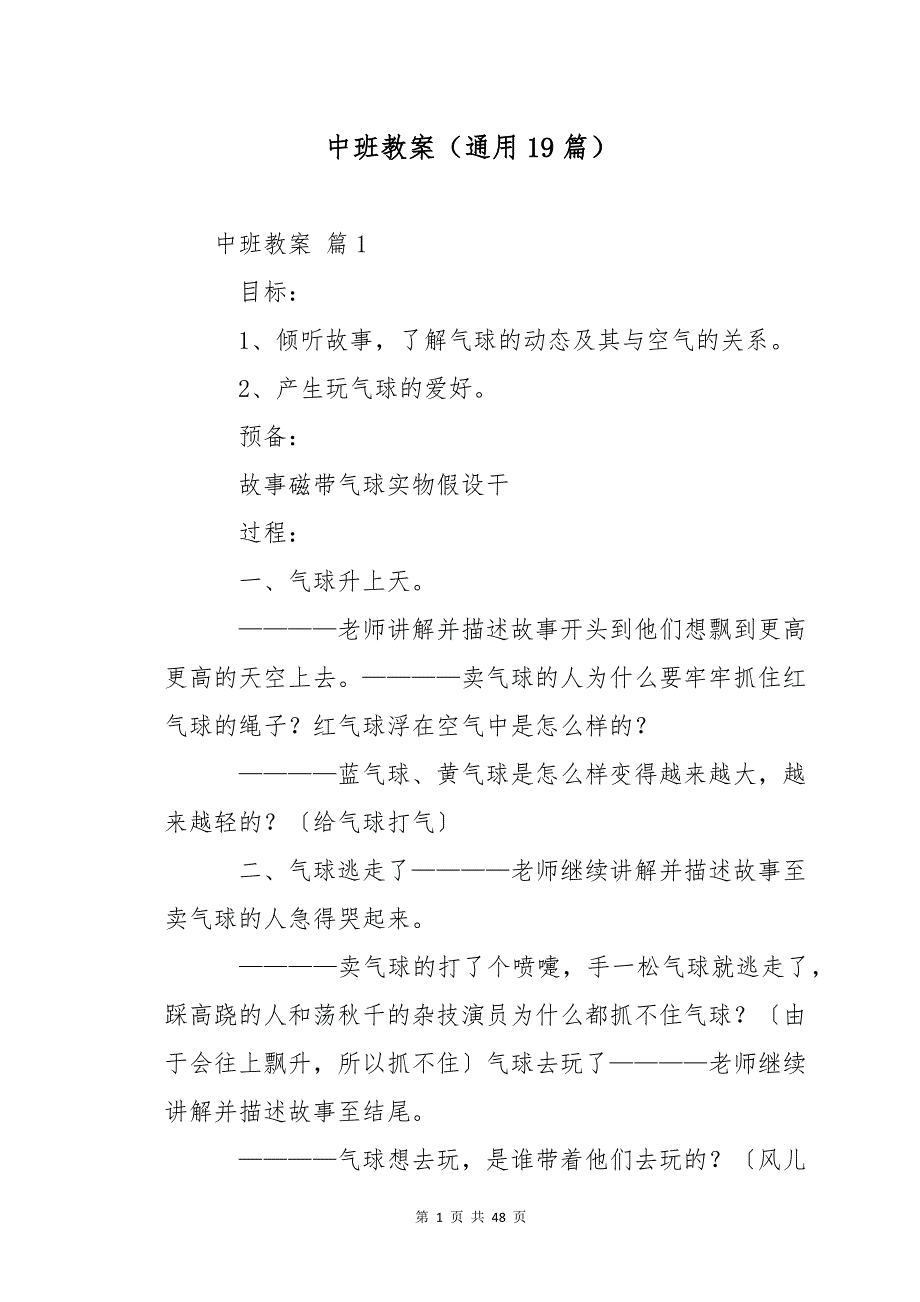 中班教案（通用19篇）
中班教案 篇1
目标：
1、倾听故事，了解气球的动态及其与空气的关系。
2、产生玩气球的爱好。
预备：
故事磁带气球实物假设干
过程：
一、气球升上天。
————老师讲解并描述故事开头到他们想飘到更高
更高的天空上去。————卖气球的人为什么要牢牢抓住红
气球的绳子？红气球浮在空气中是怎么样的？
————蓝气球、黄气球是怎么样变得越来越大，越
来越轻的？〔给气球打气〕
二、气球逃走了————老师继续讲解并描述故事至
卖气球的人急得哭起来。
————卖气球的打了个喷嚏，手一松气球就逃走了，
踩高跷的人和荡秋千的杂技演员为什么都抓不住气球？〔由
于会往上飘升，所以抓不住〕气球去玩了————老师继续
讲解并描述故事至结尾。
————气球想去玩，是谁带着他们去玩的？〔风儿
第 1 页 共 48 页